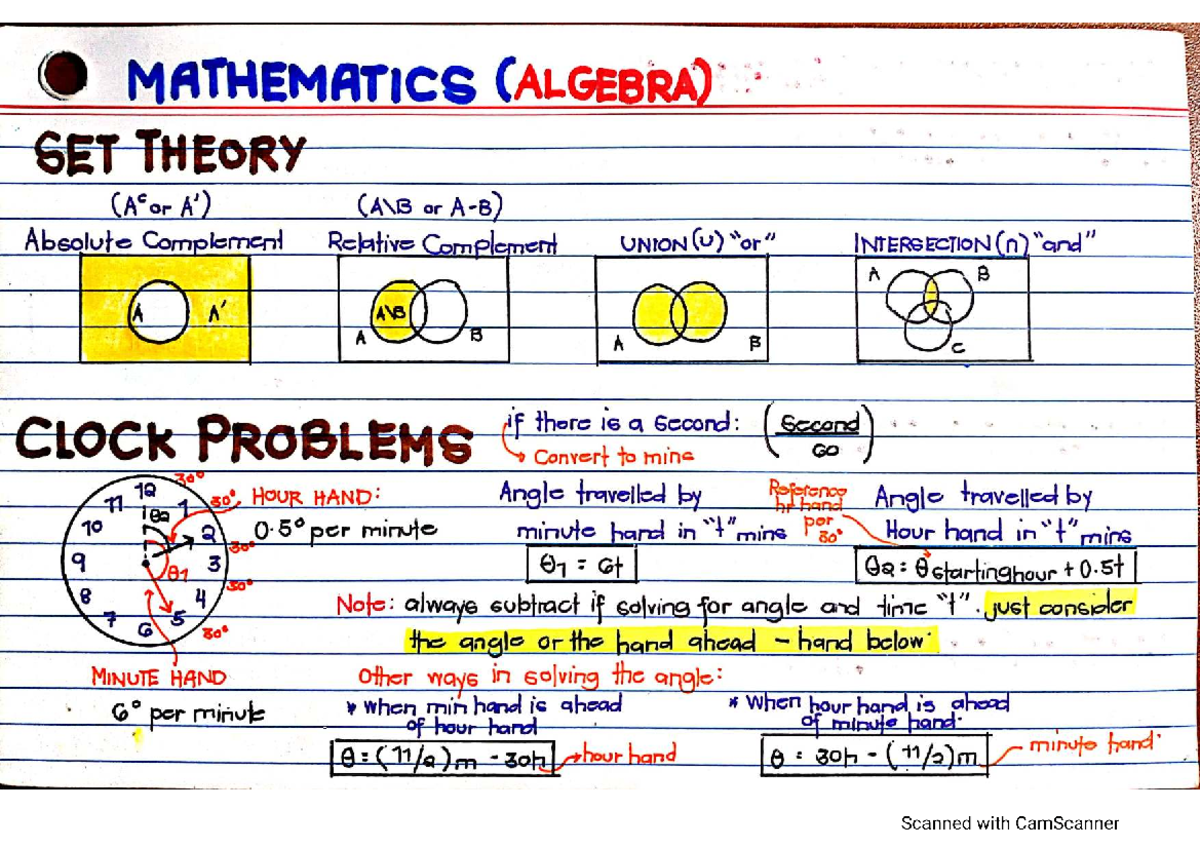 MATHEMATICS (ALGEBRA)
SET THEORY
(Aᶜ or A')
Absolute Complement
A A'
(A\B or A-B)
Relative Complement
A\B
A B
UNION (U) "or"
A B
INTERSECTION (∩) "and"
A B
C
CLOCK PROBLEMS
if there is a second: (second/60)
Convert to mins
12 1 2 3 4 5 6 7 8 9 10 11
30°
30°
30°
30°
30°
θ2
θ1
HOUR HAND:
0.5° per minute
MINUTE HAND
6° per minute
Angle travelled by
minute hand in "t" mins
θ1 = 6t
Reference
hr hand
per
30°
Angle travelled by
Hour hand in "t" mins
θ2 = θstartinghour + 0.5t
Note: always subtract if solving for angle and time "t". just consider
the angle or the hand ahead - hand below.
Other ways in solving the angle:
* When min hand is ahead
of hour hand
θ = (11/2)m - 30h
hour hand
* When hour hand is ahead
of minute hand.
θ = 30h - (11/2)m
minute hand.
Scanned with CamScanner